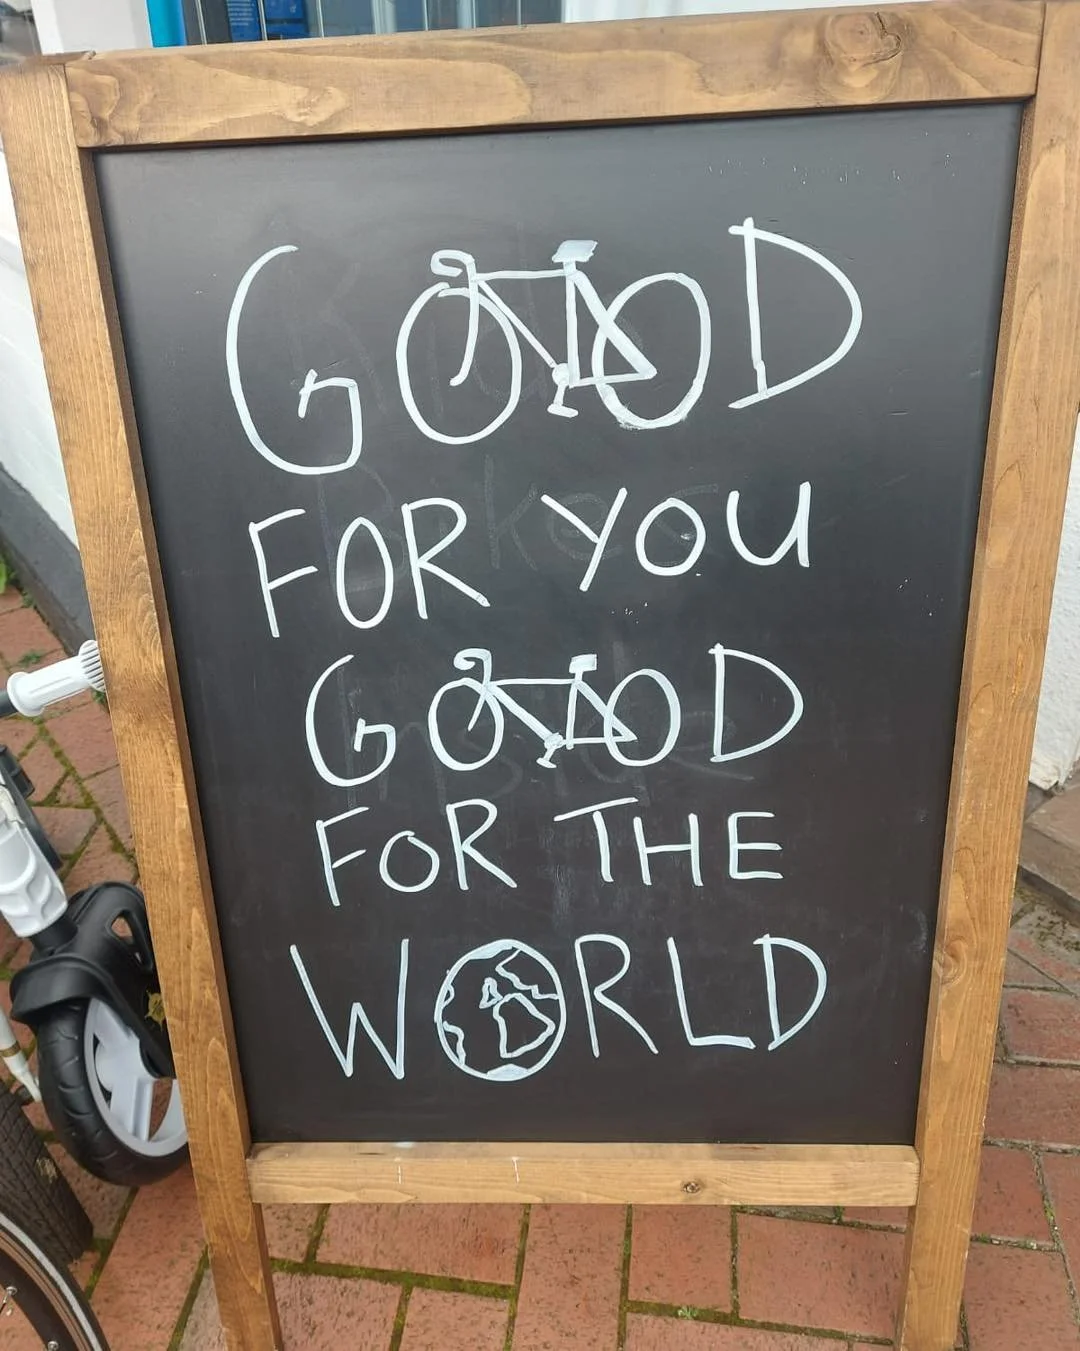 GOOD
FOR YOU
GOOD
FOR THE
WORLD